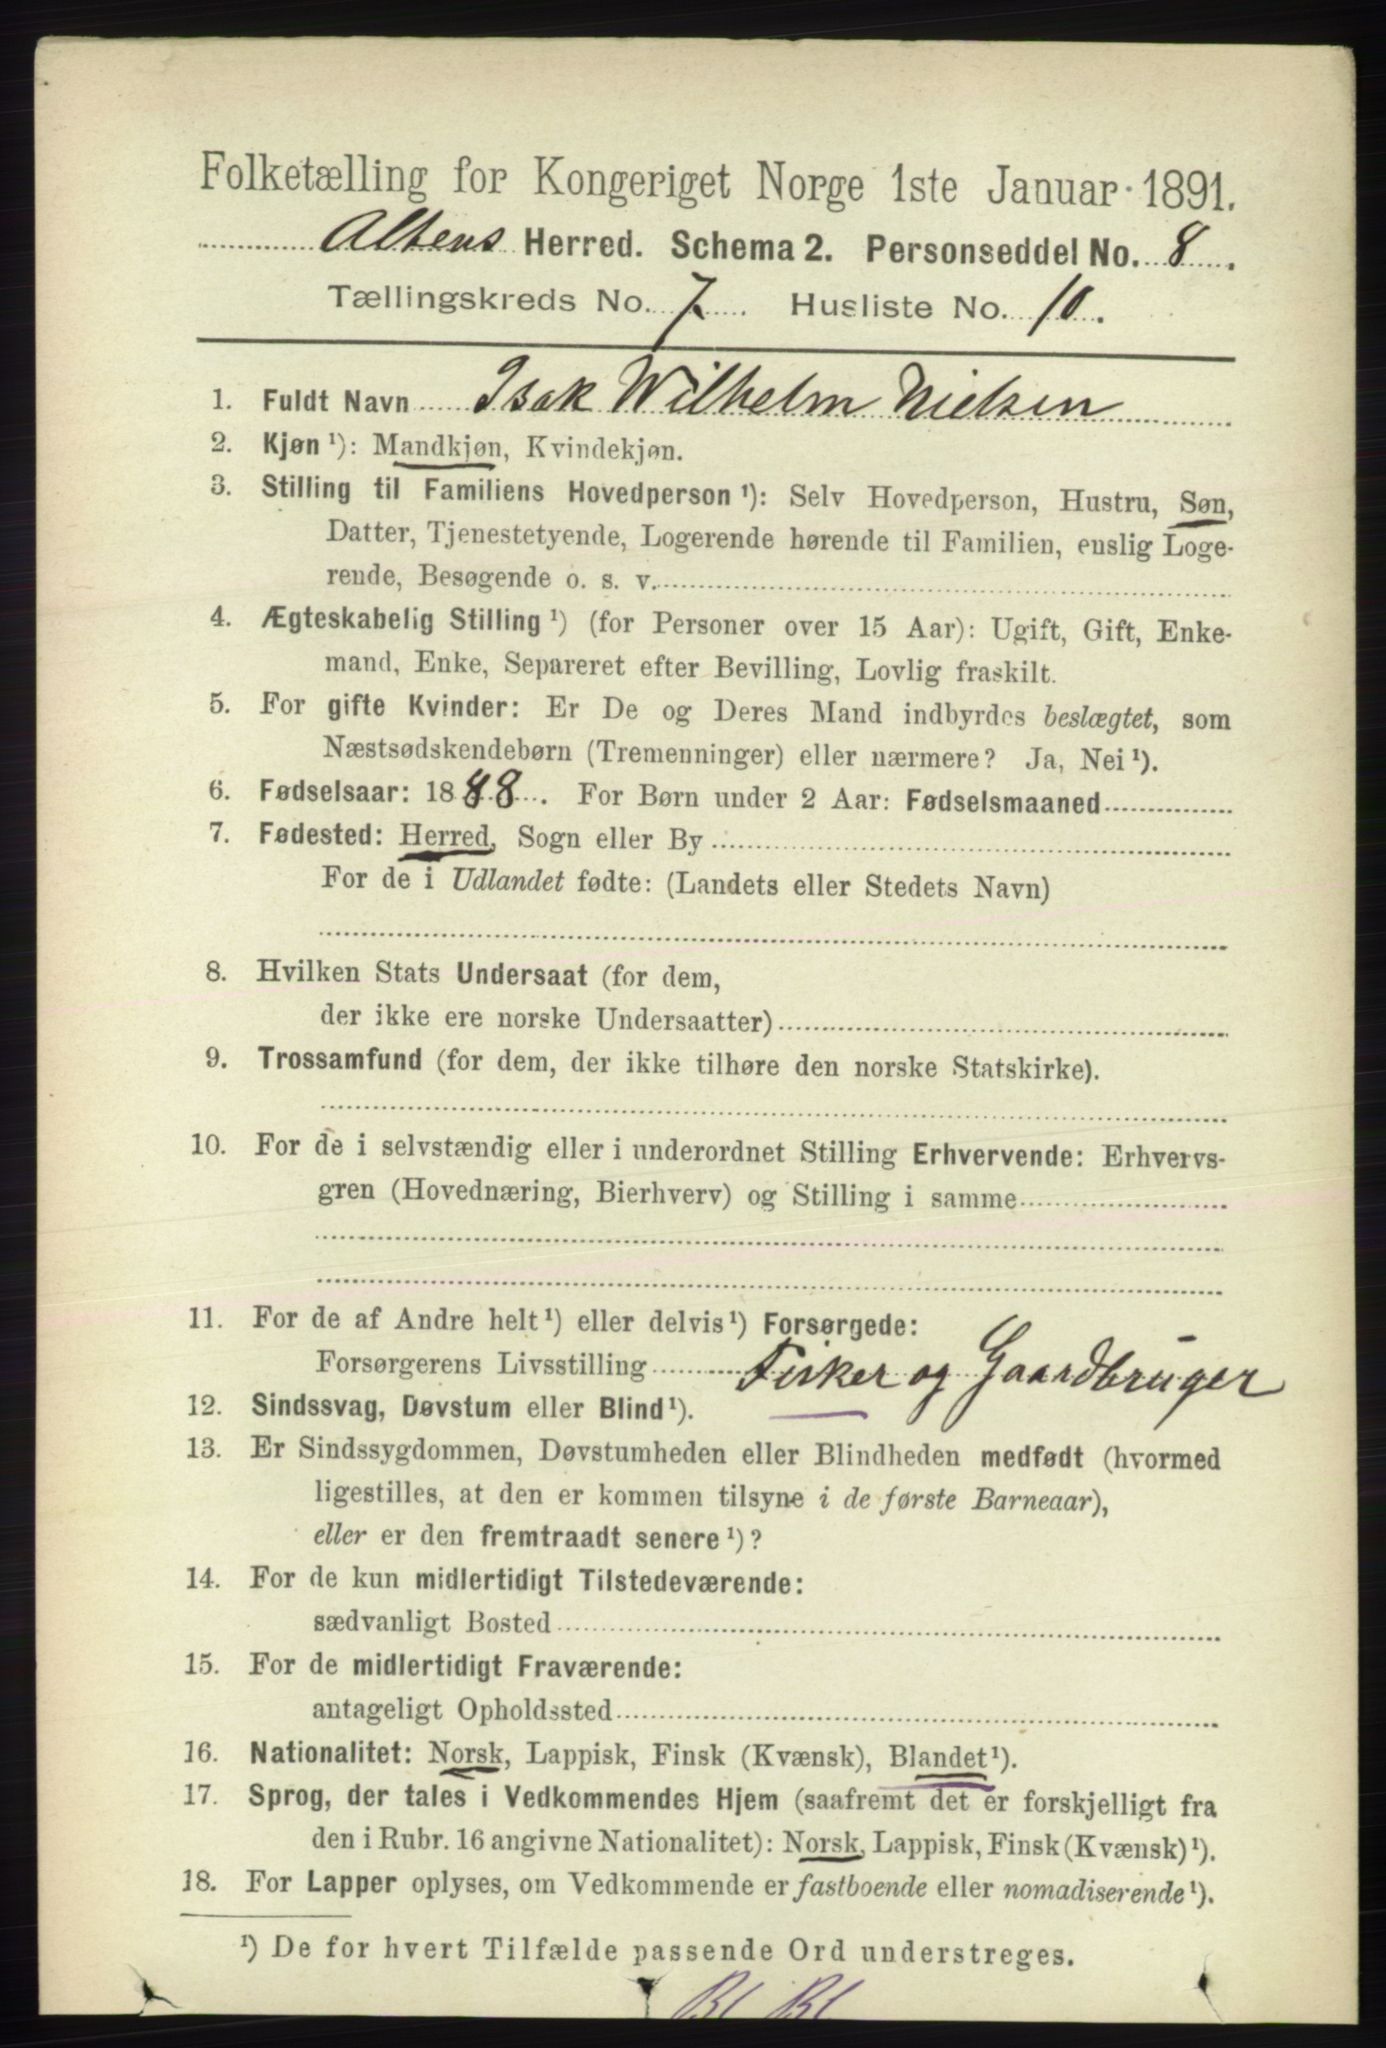 Folketælling for Kongeriget Norge 1ste Januar 1891.
Altens Herred. Schema 2. Personseddel No. 8.
Tællingskreds No. 7. Husliste No. 10.
1. Fuldt Navn Isak Wilhelm Nielsen
2. Kjøn ¹): Mandkjøn, Kvindekjøn.
3. Stilling til Familiens Hovedperson ¹): Selv Hovedperson, Hustru, Søn,
Datter, Tjenestetyende, Logerende hørende til Familien, enslig Loge-
rende, Besøgende o. s. v.
4. Ægteskabelig Stilling ¹) (for Personer over 15 Aar): Ugift, Gift, Enke-
mand, Enke, Separeret efter Bevilling, Lovlig fraskilt.
5. For gifte Kvinder: Er De og Deres Mand indbyrdes beslægtet, som
Næstsødskendebørn (Tremenninger) eller nærmere? Ja, Nei ¹).
6. Fødselsaar: 1888. For Børn under 2 Aar: Fødselsmaaned
7. Fødested: Herred, Sogn eller By
For de i Udlandet fødte: (Landets eller Stedets Navn)
8. Hvilken Stats Undersaat (for dem,
der ikke ere norske Undersaatter)
9. Trossamfund (for dem, der ikke tilhøre den norske Statskirke).
10. For de i selvstændig eller i underordnet Stilling Erhvervende: Erhvervs-
gren (Hovednæring, Bierhverv) og Stilling i samme
11. For de af Andre helt ¹) eller delvis ¹) Forsørgede:
Forsørgerens Livsstilling Fisker og Gaardbruger
12. Sindssvag, Døvstum eller Blind ¹).
13. Er Sindssygdommen, Døvstumheden eller Blindheden medfødt (hvormed
ligestilles, at den er kommen tilsyne i de første Barneaar),
eller er den fremtraadt senere ¹)?
14. For de kun midlertidigt Tilstedeværende:
sædvanligt Bosted
15. For de midlertidigt Fraværende:
antageligt Opholdssted
16. Nationalitet: Norsk, Lappisk, Finsk (Kvænsk), Blandet ¹).
17. Sprog, der tales i Vedkommendes Hjem (saafremt det er forskjelligt fra
den i Rubr. 16 angivne Nationalitet): Norsk, Lappisk, Finsk (Kvænsk) ¹).
18. For Lapper oplyses, om Vedkommende er fastboende eller nomadiserende ¹).
¹) De for hvert Tilfælde passende Ord understreges.
Bl Bl